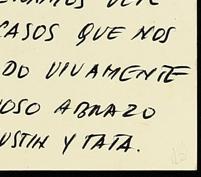 CASOS QUE NOS
DO VIVAMENTE
OSO ABRAZO
USTIN Y TATA.